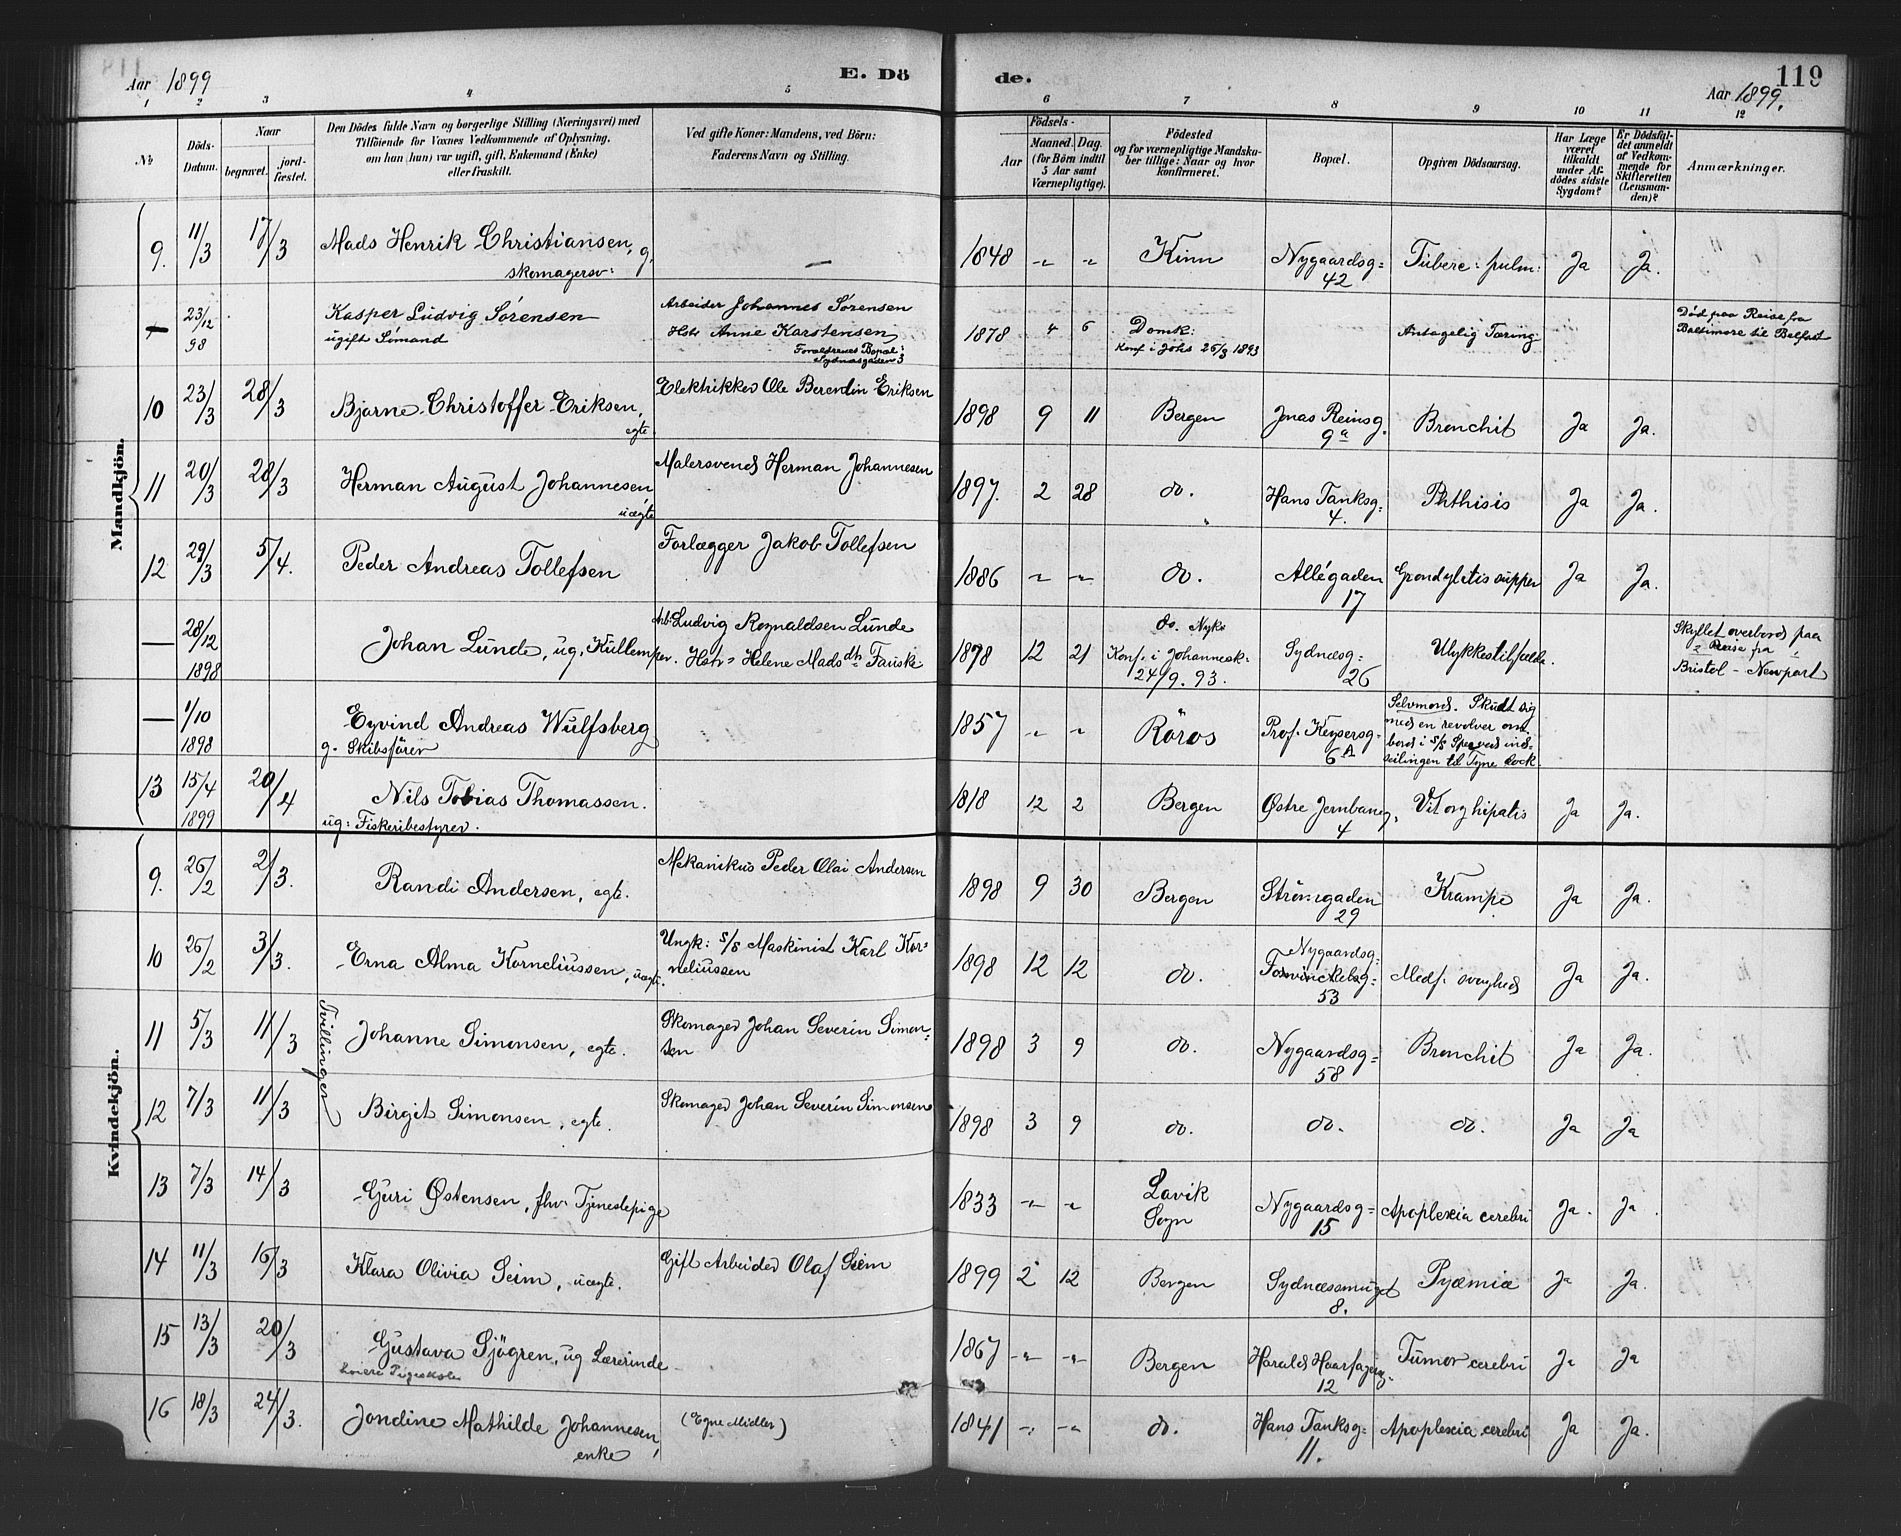 Aar 1899
E. Dö
de.
119
Aar 1899.
1 2 3 4 5 6 7 8 9 10 11 12
№
Döds-
Datum.
Naar
begravet.
jord-
fæstet.
Den Dödes fulde Navn og borgerlige Stilling (Næringsvei) med
Tilföiende for Voxnes Vedkommende af Oplysning,
om han (hun) var ugift, gift, Enkemand (Enke)
eller fraskilt.
Ved gifte Koner: Mandens, ved Börn:
Faderens Navn og Stilling.
Födsels-
Aar
Maaned. Dag.
(for Börn indtil
5 Aar samt
Værnepligtige).
Födested
og for værnepligtige Mandska-
ber tillige: Naar og hvor
konfirmeret.
Bopæl.
Opgiven Dödsaarsag.
Har Læge
været
tilkaldt
under Af-
dödes sidste
Sygdom?
Er Dödsfal-
det anmeldt
af Vedkom-
mende for
Skifteretten
(Lensman-
den)?
Anmærkninger.
Mandkjön.
9. 11/3 17/3 Mads Henrik Christiansen, g.
skomagersv:
—
1848 " " Kinn Nygaardsg=
42
Tuberc: pulm: Ja Ja.
— 23/12
98
Kasper Ludvig Sørensen
ugift Sömand
Arbeider Johannes Sørensen
Hstr Anne Karstensen
Forældrenes Bopæl:
Sydnæsgaden 3
1878 4 6 Domk:
Konf. i Johs 26/3 1893
Antagelig Tæring
Död paa Reise fra
Baltimore til Belfast
10 23/3 28/3 Bjarne Christoffer Eriksen,
egte.
Elektrikker Ole Berentin Eriksen
1898 9 11 Bergen Jonas Reinsg.
9a
Bronchit Ja Ja.
11 20/3 28/3 Herman August Johannesen,
uægte
Malersvend Herman Johannesen
1897. 2 28 do. Hans Tanksg:
4.
Phthisis Ja Ja.
12 29/3 5/4. Peder Andreas Tollefsen
Forlægger Jakob Tollefsen
1886 " " do. Allégaden
17
Ja Ja.
— 28/12
1898
Johan Lunde, ug, Kullemper.
Arb: Ludvig Rognaldsen Lunde
Hstr= Helene Madsdtr Fauske
1878 12 21 do. Nyk:
Konf. i Johannesk:
24/9. 93.
Sydnæsg=
26
Ulykkestilfælde.
Skyllet overbord paa
Reise fra
Bristol - Newport
— 1/10
1898
Eyvind Andreas Wulfsberg
g. Skibsförer
1857 " " Röros Prof. Keysersg=
6 A
Selvmord. Skudt sig
med en revolver om
bord i S/S Sperved ind-
seilingen til Tyne Dock
13 15/4
1899
20/4 Nils Tobias Thomassen.
ug: Fiskeribestyrer.
1818 12 2 Bergen Østre Jernbaneg,
4
Vit org hipatis Ja Ja.
Kvindekjön.
9. 26/2 2/3. Randi Andersen, egte.
Mekanikus Peder Olai Andersen
1898 9 30 Bergen Strömgaden
29
Krampe Ja Ja.
10 26/2 3/3. Erna Alma Korneliussen, uægte.
Ungk: S/S Maskinist Karl Kor=
neliussen
1898 12 12 do. Nygaardsg=
53
Medf. svaghed Ja Ja.
Tvillinger
11 5/3 11/3 Johanne Simonsen, egte.
Skomager Johan Severin Simon=
sen
1898 3 9 do. Nygaardsg=
58
Bronchit Ja Ja.
12 7/3 11/3 Birgit Simonsen, egte.
Skomager Johan Severin Simonsen
1898 3 9 do. do. do. Ja Ja
13 7/3 14/3 Guri Østensen, fhv. Tjenestepige
1833 " " Lavik
Sogn
Nygaardsg=
15
Apoplexia cerebri Ja. Ja.
14 11/3 16/3 Klara Olivia Seim, uægte.
Gift Arbeider Olaf Seim
1899 2 12 Bergen Sydnæssmuget
8.
Pyæmia Ja Ja.
15 13/3 20/3 Gustava Sjögren, ug Lærerinde
Pigeskole
1867 " " Bergen Harald Haarfagersg.
12
Tumor cerebri Ja Ja
16 18/3 24/3. Jondine Mathilde Johannesen,
enke
(Egne Midler)
1841 " " do. Hans Tanksg=
11.
Apoplexia cerebri Ja Ja.